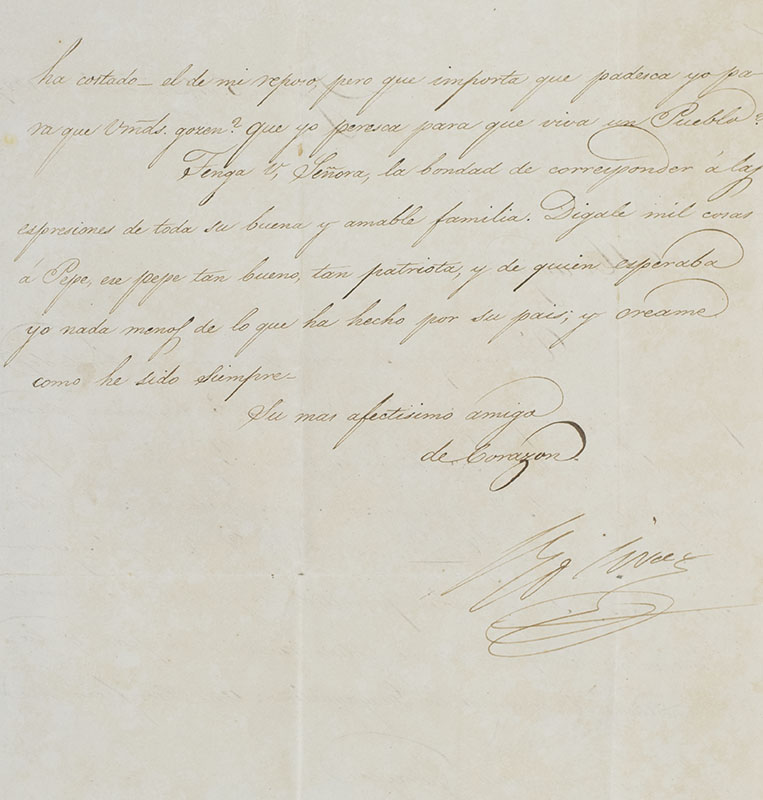 ha costado_ el de mi reposo, pero que importa que padesca yo pa-
ra que Vmds. gozen? que yo peresca para que viva un Pueblo?
Tenga V, Señora, la bondad de corresponder á las
espresiones de toda su buena y amable familia. Digale mil cosas
á Pepe, ese pepe tan bueno, tan patriota, y de quien esperaba
yo nada menos de lo que ha hecho por su pais; y creame
como he sido siempre_
Su mas afectisimo amigo
de Corazon.
Bolivar